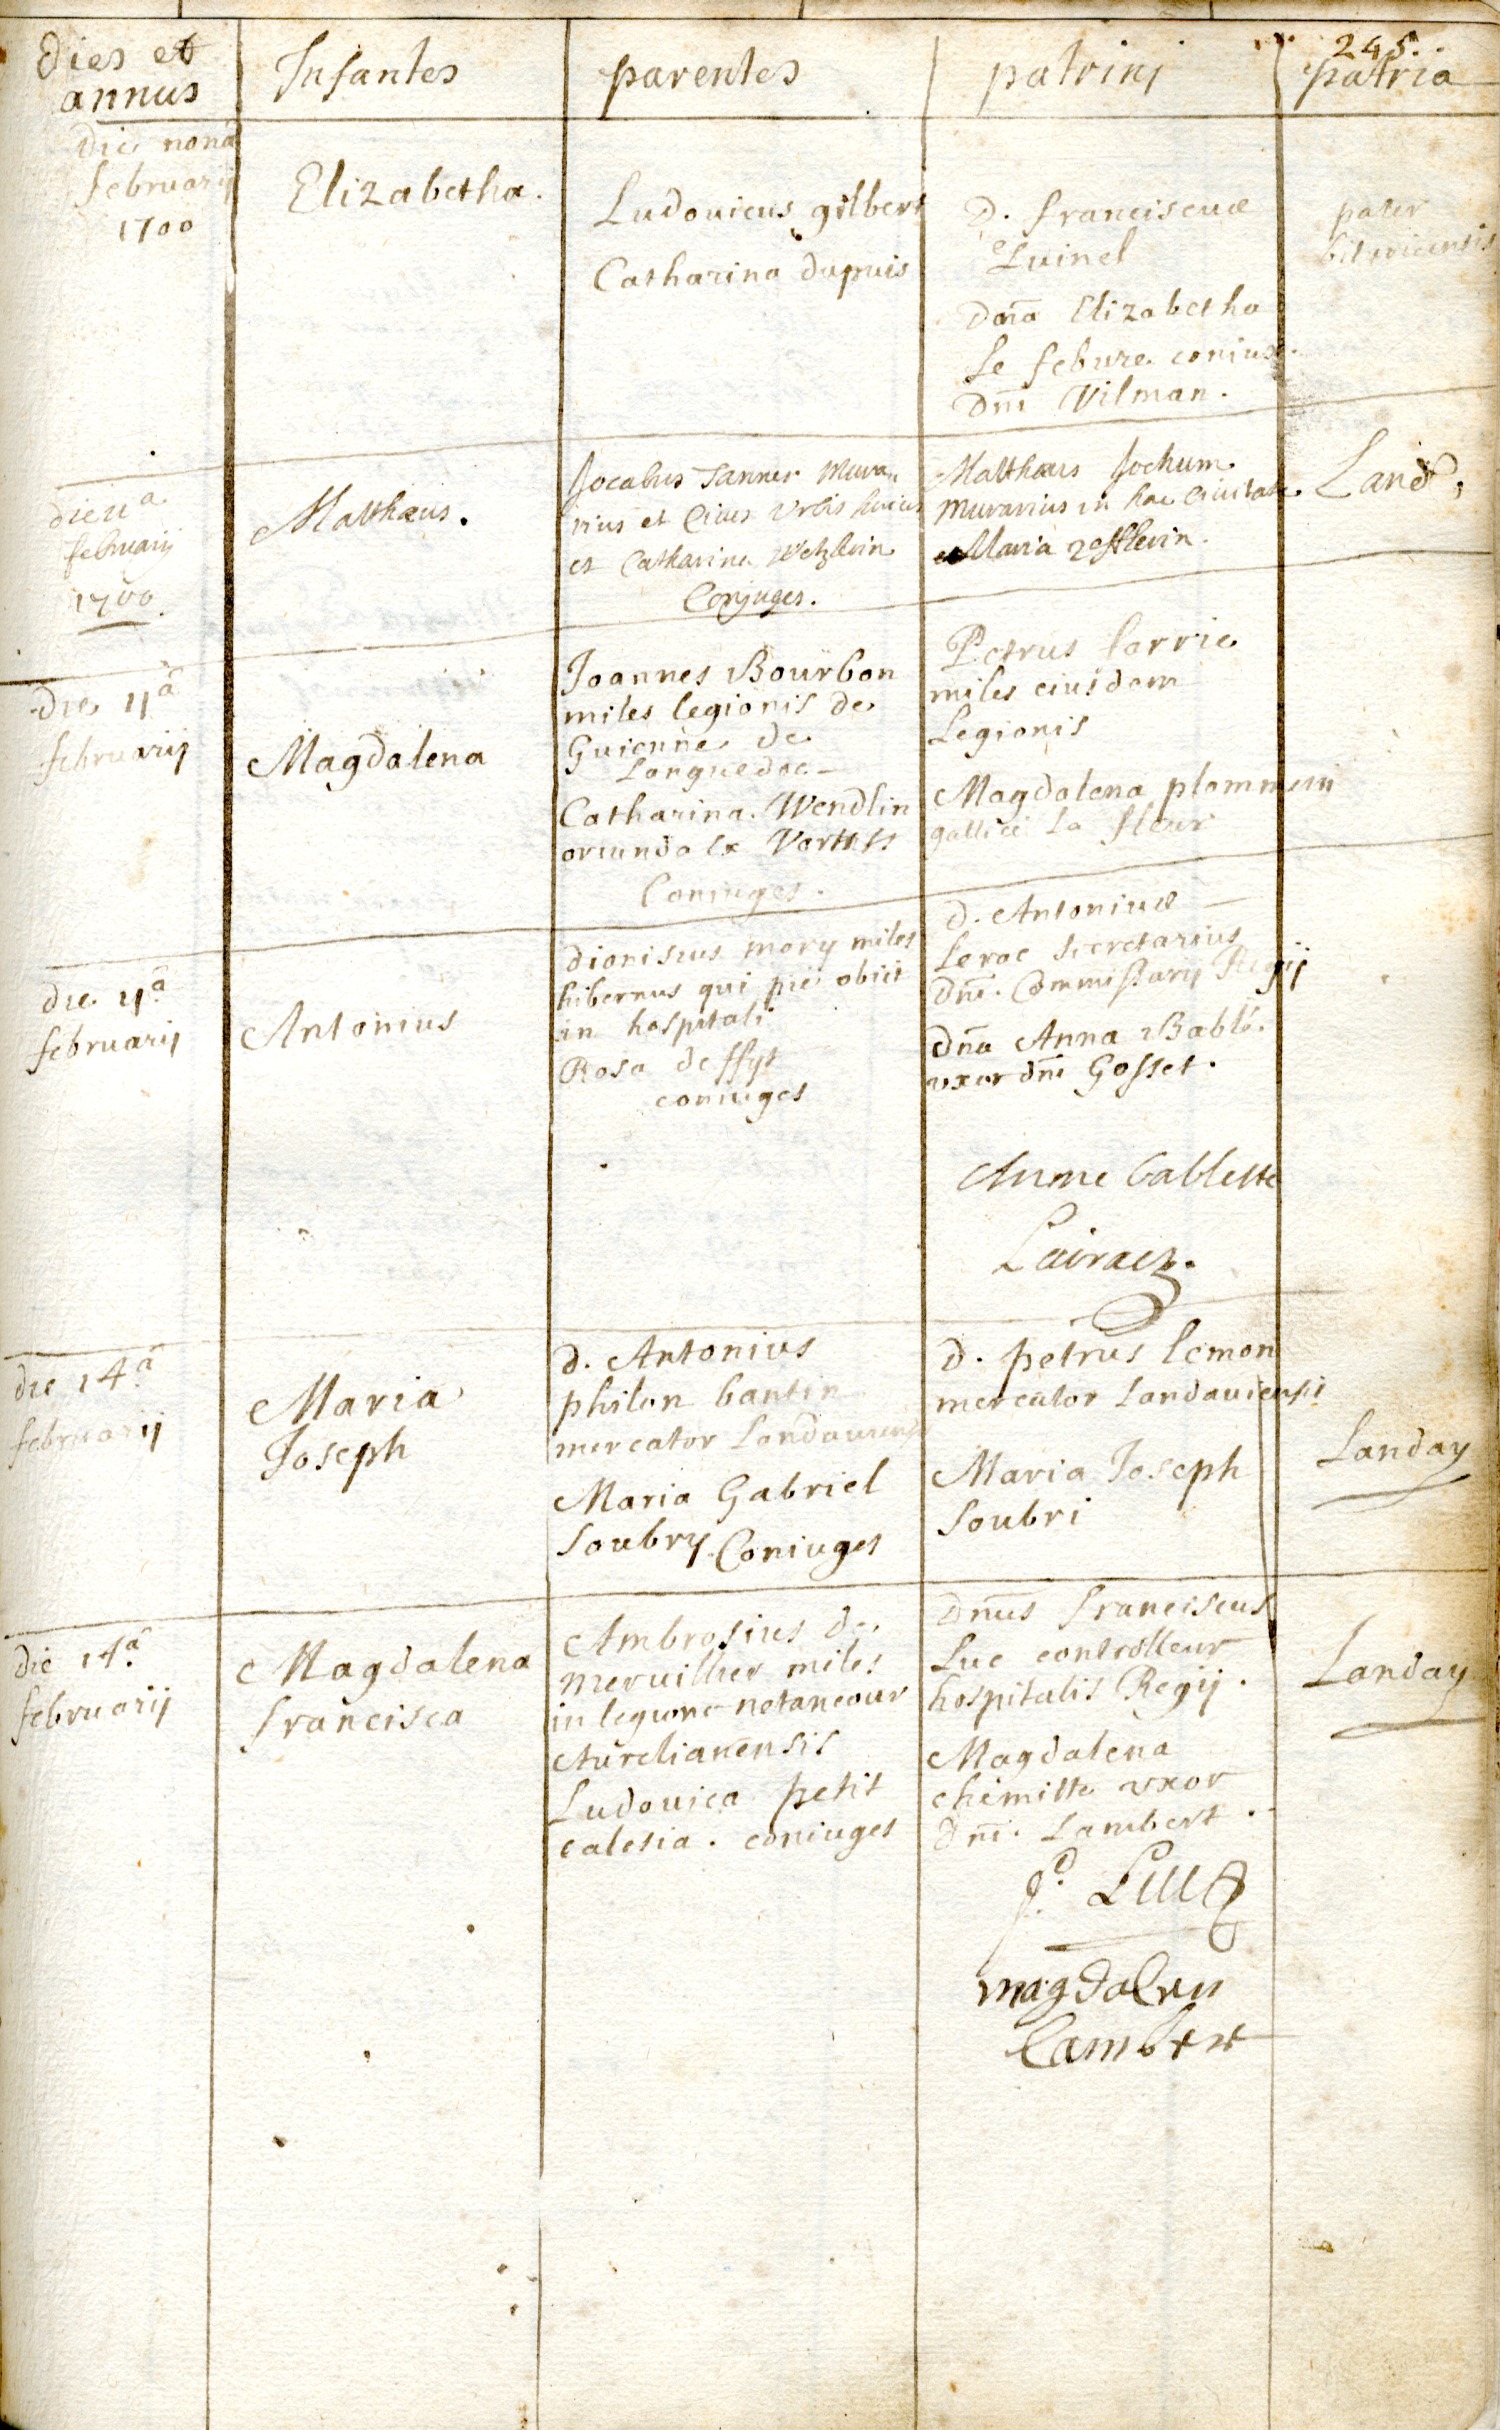 245.
Dies et
annus
Infantes
parentes
patrinj
patria
Die nona
februarij
1700
Elizabetha.
Ludouicus gilbert
Catharina dupuis
D. franciscus
Luinel
Dna Elizabetha
Le febure coniux
Dni Vilman.
pater
bituricensis
die 11a
februarij
1700.
Matthæus.
Jocabus Tanner Mura„
rius et Ciues Urbis huius
et Catharina Wetzlerin
Conjuges.
Matthæus Jochum
Murarius in hac Ciuitate
et Maria
Land,
die 11a
februarij
Magdalena
Joannes Bourbon
miles legionis de
Guienne de
Languedoc
Catharina Wendlin
oriunda ex
Coniuges.
Petrus Carrie
miles eiusdem
Legionis
Magdalena plommerin
gallice la fleur
die 11a
februarij
Antonius
dionisius mory miles
hibernus qui pie obiit
in hospitali
Rosa deffyt
coniuges
d. Antonius
Leroc secretarius
dni. Commissarij Regij
dna Anna Bablé.
uxor dni Gosset.
Anne bablette
Lairacz.
die 14.a
februarij
Maria
Joseph
d. Antonius
philon bantin
mercator Landauiensis
Maria Gabriel
Soubry Coniuges
d. petrus lemon
mercator Landauiensis
Maria Joseph
Soubri
Landay
die 14.a
februarij
Magdalena
francisca
Ambrosius de
mervillier miles
in legione netancour
Aurelianensis
Ludouica petit
calesia. coniuges
Dnus franciscus
Luc controlleur
hospitalis Regij.
Magdalena
chimitte uxor
dni. Lambert.
Landay
magdalen
Lambert